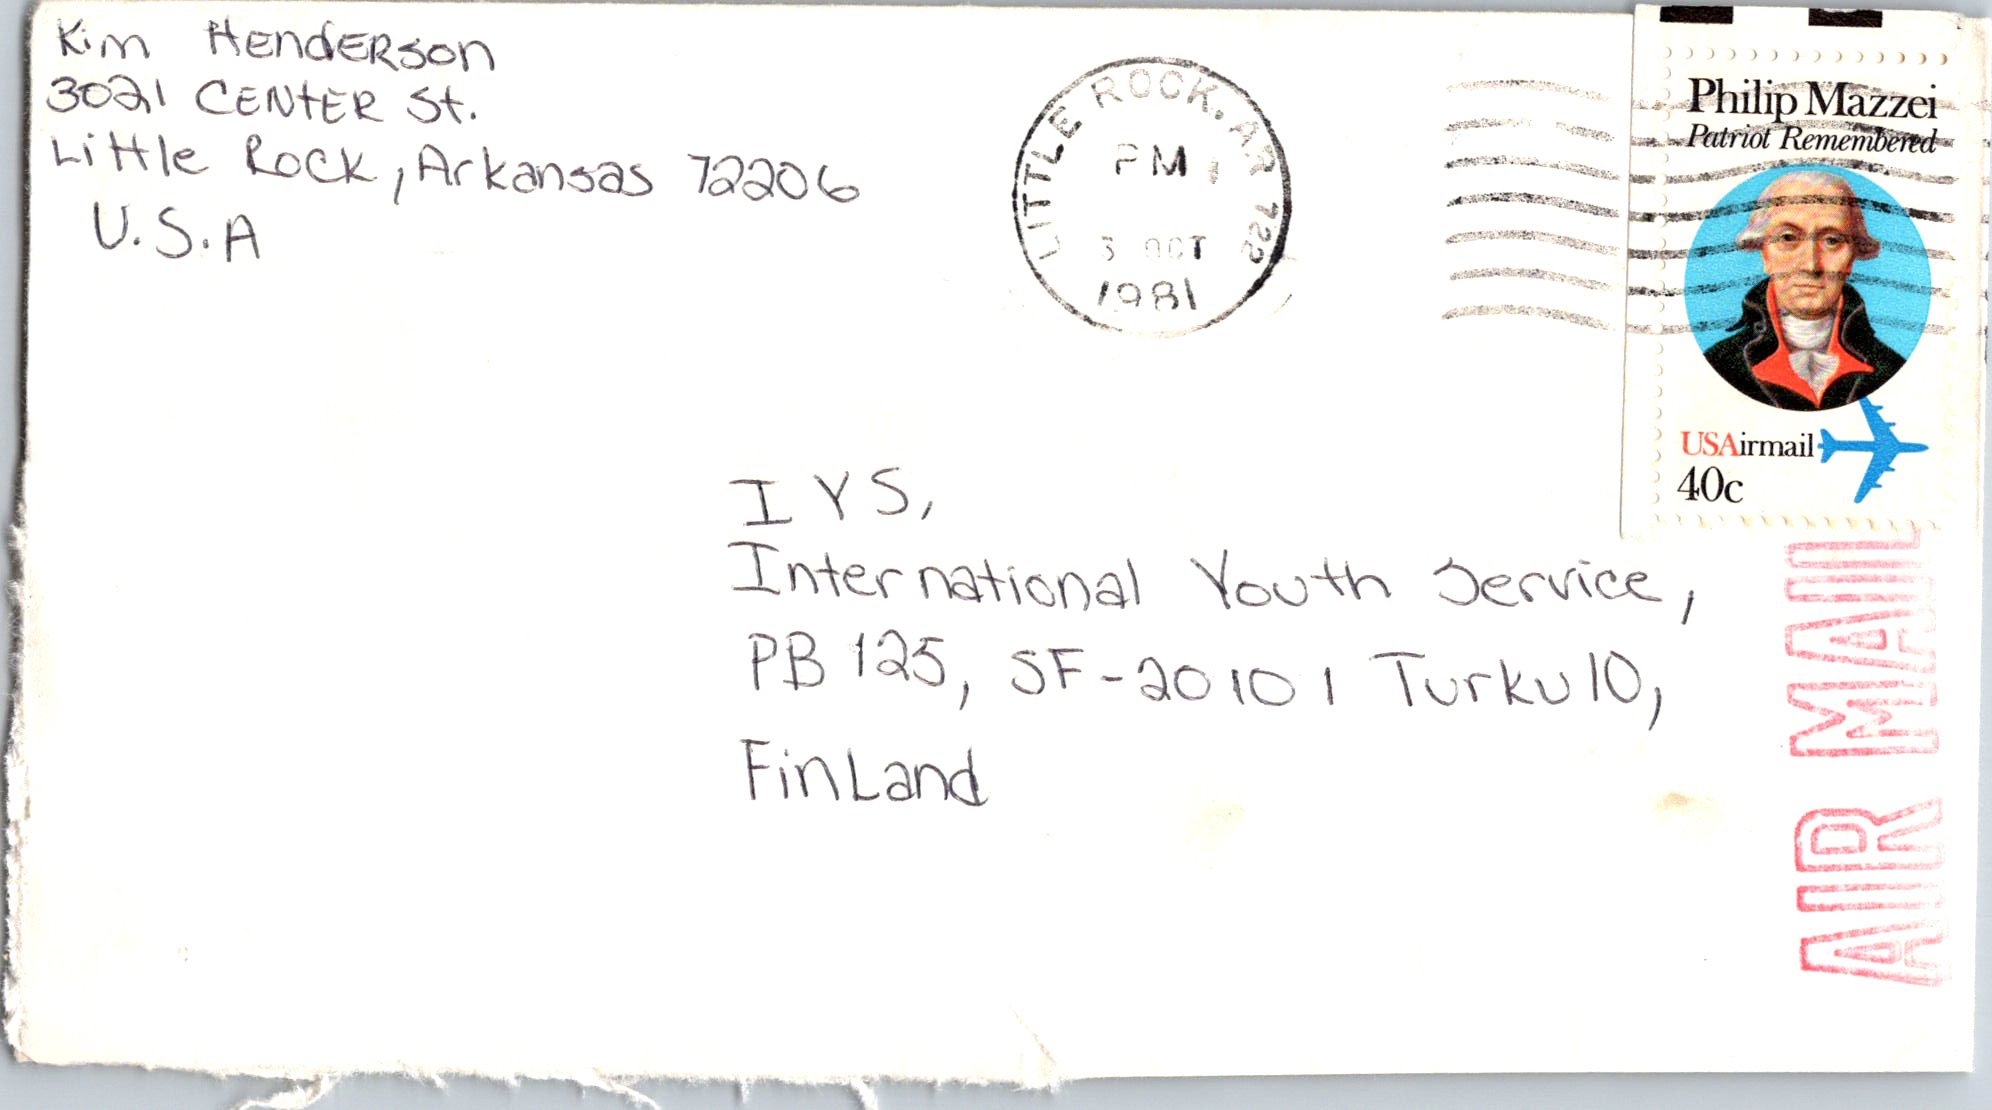 Kim Henderson
3021 CENTER St.
Little Rock, Arkansas 72206
U.S.A
LITTLE ROCK, AR 722
PM
OCT
1981
Philip Mazzei
Patriot Remembered
USAirmail
40c
IYS,
International Youth Service,
PB 125, SF-20101 Turku 10,
FinLand
AIR MAIL